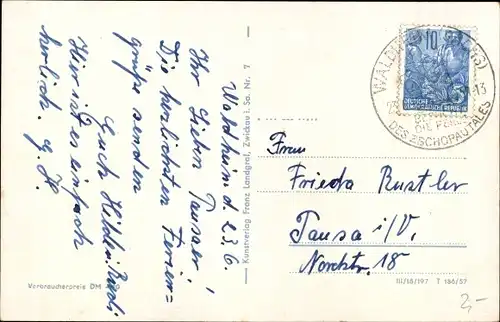 Waldheim d. 23.6.
Ihr Lieben Pausaer!
Die herzlichsten Ferien=
grüße senden
Euch Hilde u. Rudi
Hier ist es einfach
herrlich. g. H.
Verbraucherpreis DM
Kunstverlag Franz Landgraf, Zwickau i. Sa. Nr. 7
10
DEUTSCHE
DEMOKRATISCHE REPUBLIK
DIE PERLE
DES ZSCHOPAUTALES
Frau
Frieda Rustler
Pausa i/V.
Nordstr. 18
III/18/197 T 186/57
2,-